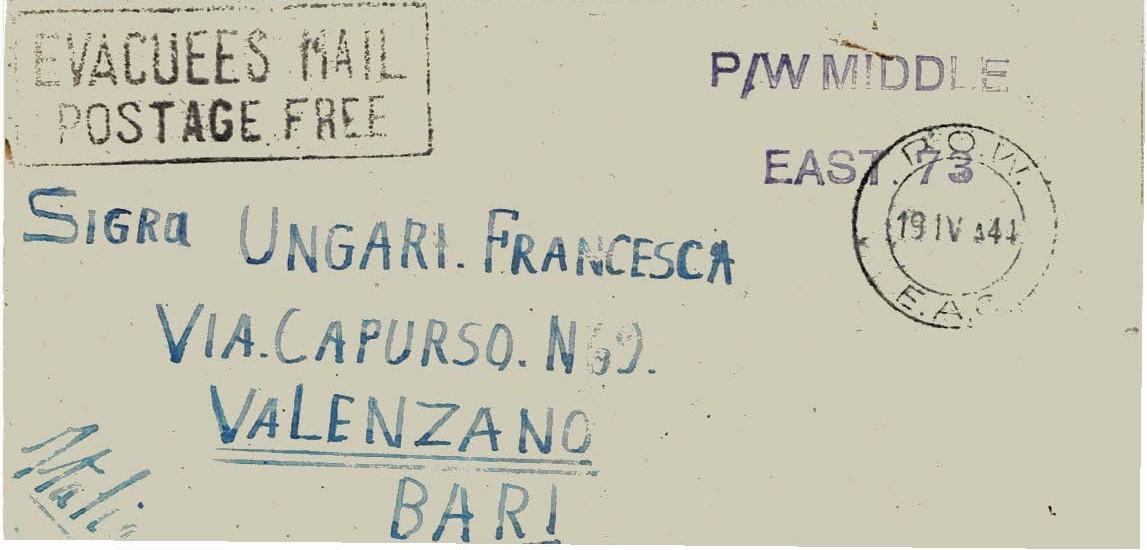 EVACUEES MAIL
POSTAGE FREE
P/W MIDDLE
EAST. 73
P.O.W.
19 IV 44
E.A.C.
SIGRa UNGARI. FRANCESCA
VIA. CAPURSO. N 69.
VALENZANO
BARI
Italia